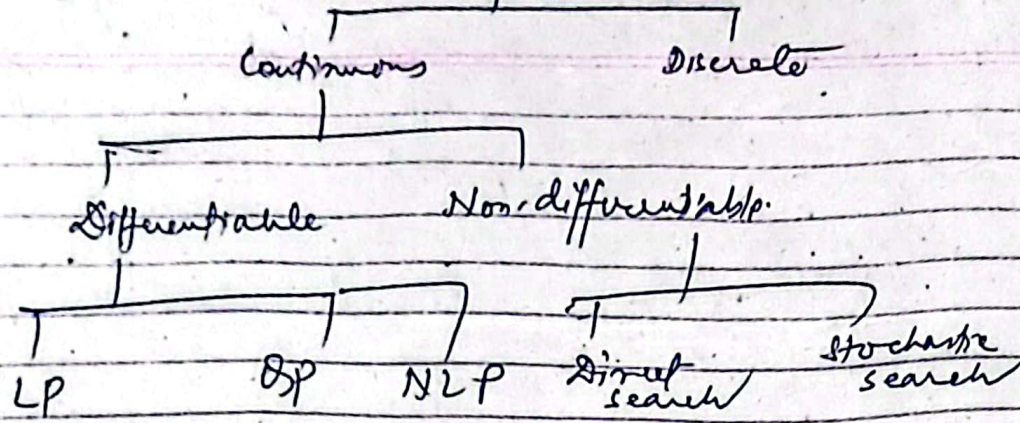 Continuous Discrete
Differentiable Non-differentiable.
LP QP NLP Direct search Stochastic search